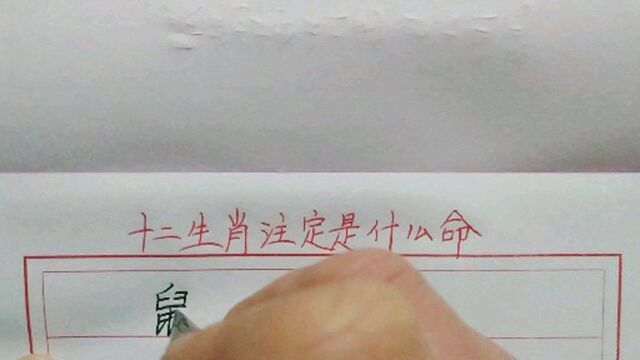 十二生肖注定是什么命
鼠